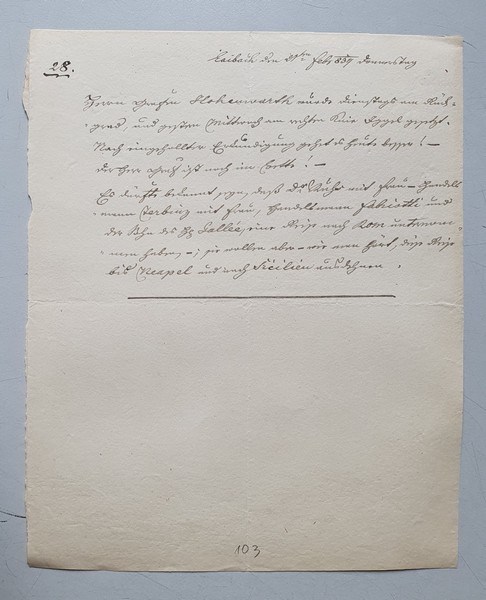 28.
Laibach den 21ten Feb 859 Donnerstag
Herrn Grafen Hohenwarth wurde Dienstags am Rück-
grad, und gestern Mittwoch am rechten Knie Eggel gesetzt.
Nach eingehollter Erkundigung geht es heute besser! –
der Herr Graf ist noch im Bette! –
Es dürfte bekannt seyn, daß Dr mit Frau – Handels
mann Terbinz mit Frau, Handelsmann Fabiotti und
der Sohn des Gallé, eine Reise nach Rom unternom-
men haben, –; sie wollen aber – wie man hört, diese Reise
bis Neapel und nach Sicilien ausdehnen.
103